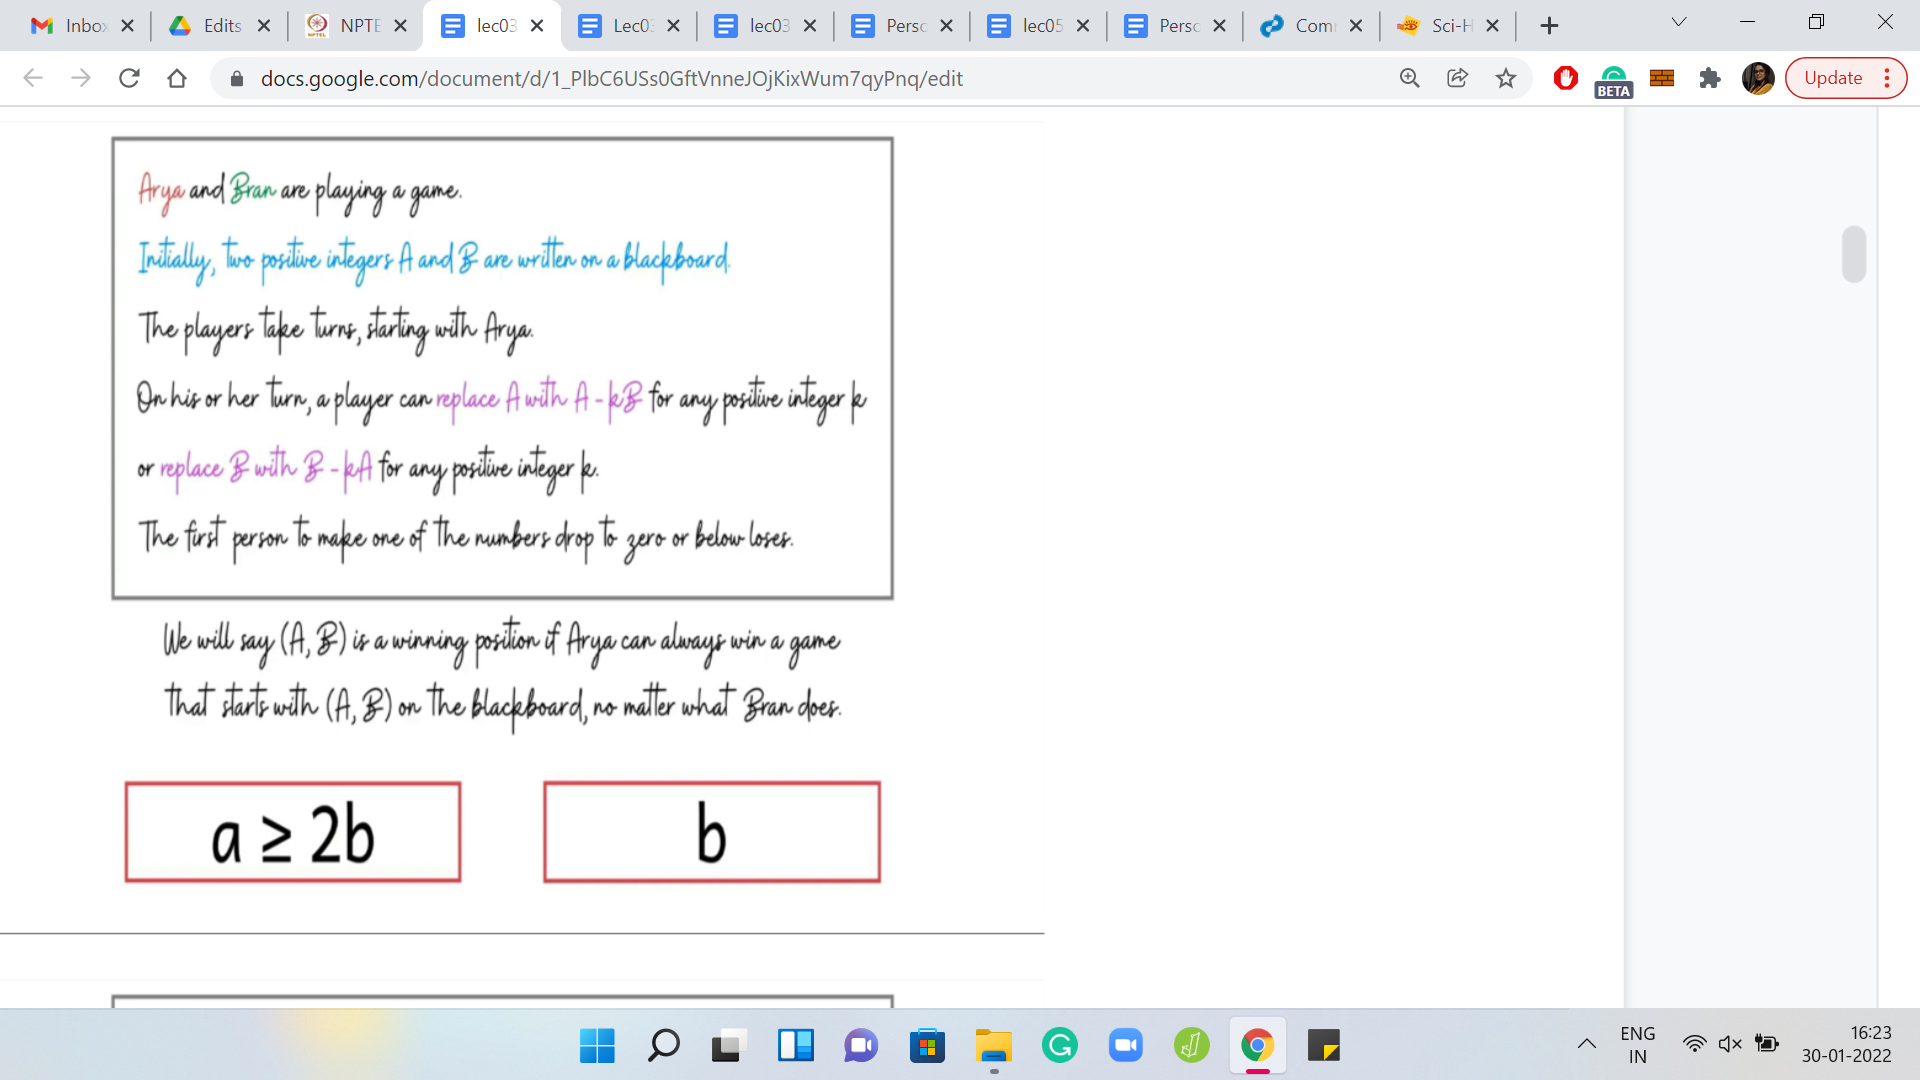 Inbox
Edits
NPTE
lec03
Lec03
lec03
Perso
lec05
Perso
Com
Sci-H
docs.google.com/document/d/1_PlbC6USs0GftVnneJOjKixWum7qyPnq/edit
BETA
Update
Arya and Bran are playing a game.
Initially, two positive integers A and B are written on a blackboard.
The players take turns, starting with Arya.
On his or her turn, a player can replace A with A - kB for any positive integer k
or replace B with B - kA for any positive integer k.
The first person to make one of the numbers drop to zero or below loses.
We will say (A, B) is a winning position if Arya can always win a game
that starts with (A, B) on the blackboard, no matter what Bran does.
a ≥ 2b
b
ENG
IN
16:23
30-01-2022